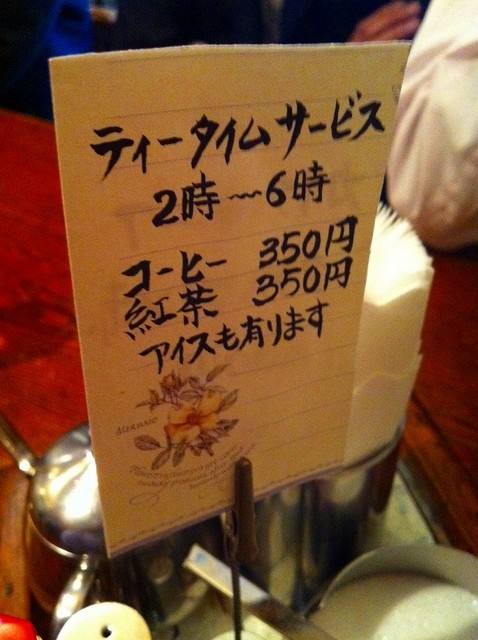 ティータイムサービス
2時〜6時
コーヒー 350円
紅茶 350円
アイスも有ります